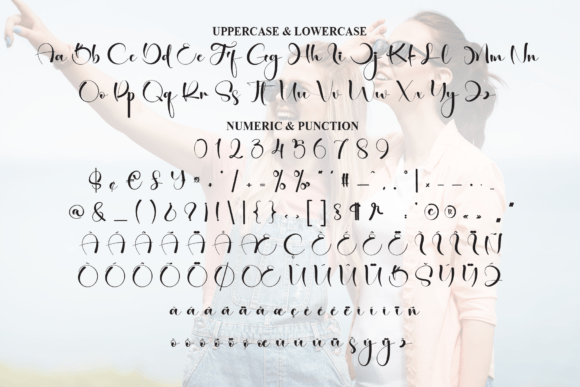 UPPERCASE & LOWERCASE
Aa Bb Cc Dd Ee Ff Gg Hh Ii Jj Kk Ll Mm Nn
Oo Pp Qq Rr Ss Tt Uu Vv Ww Xx Yy Zz
NUMERIC & PUNCTION
0 1 2 3 4 5 6 7 8 9
$ ¢ € £ ¥ % ‰ # _
@ & _ ( ) ¿ ? ¡ ! \ | { } [ ] § ¶ © ®
À Á Â Ã Ä Å Æ Ç È É Ê Ë Ì Í Î Ï Ñ
Ò Ó Ô Õ Ö Ø Œ Ù Ú Û Ü Š Ÿ Ž
à á â ã ä å æ ç è é ê ë ì í î ï ñ
ò ó ô õ ö ø œ ù ú û ü š ý ÿ ž